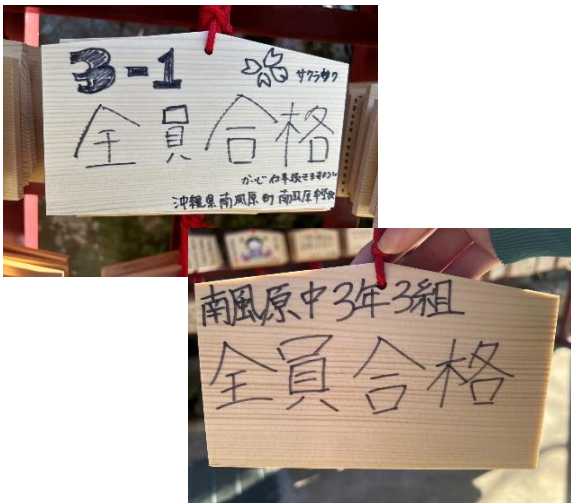 3-1
サクラサク
全員合格
沖縄県南風原町 南風原中学校
南風原中3年3組
全員合格